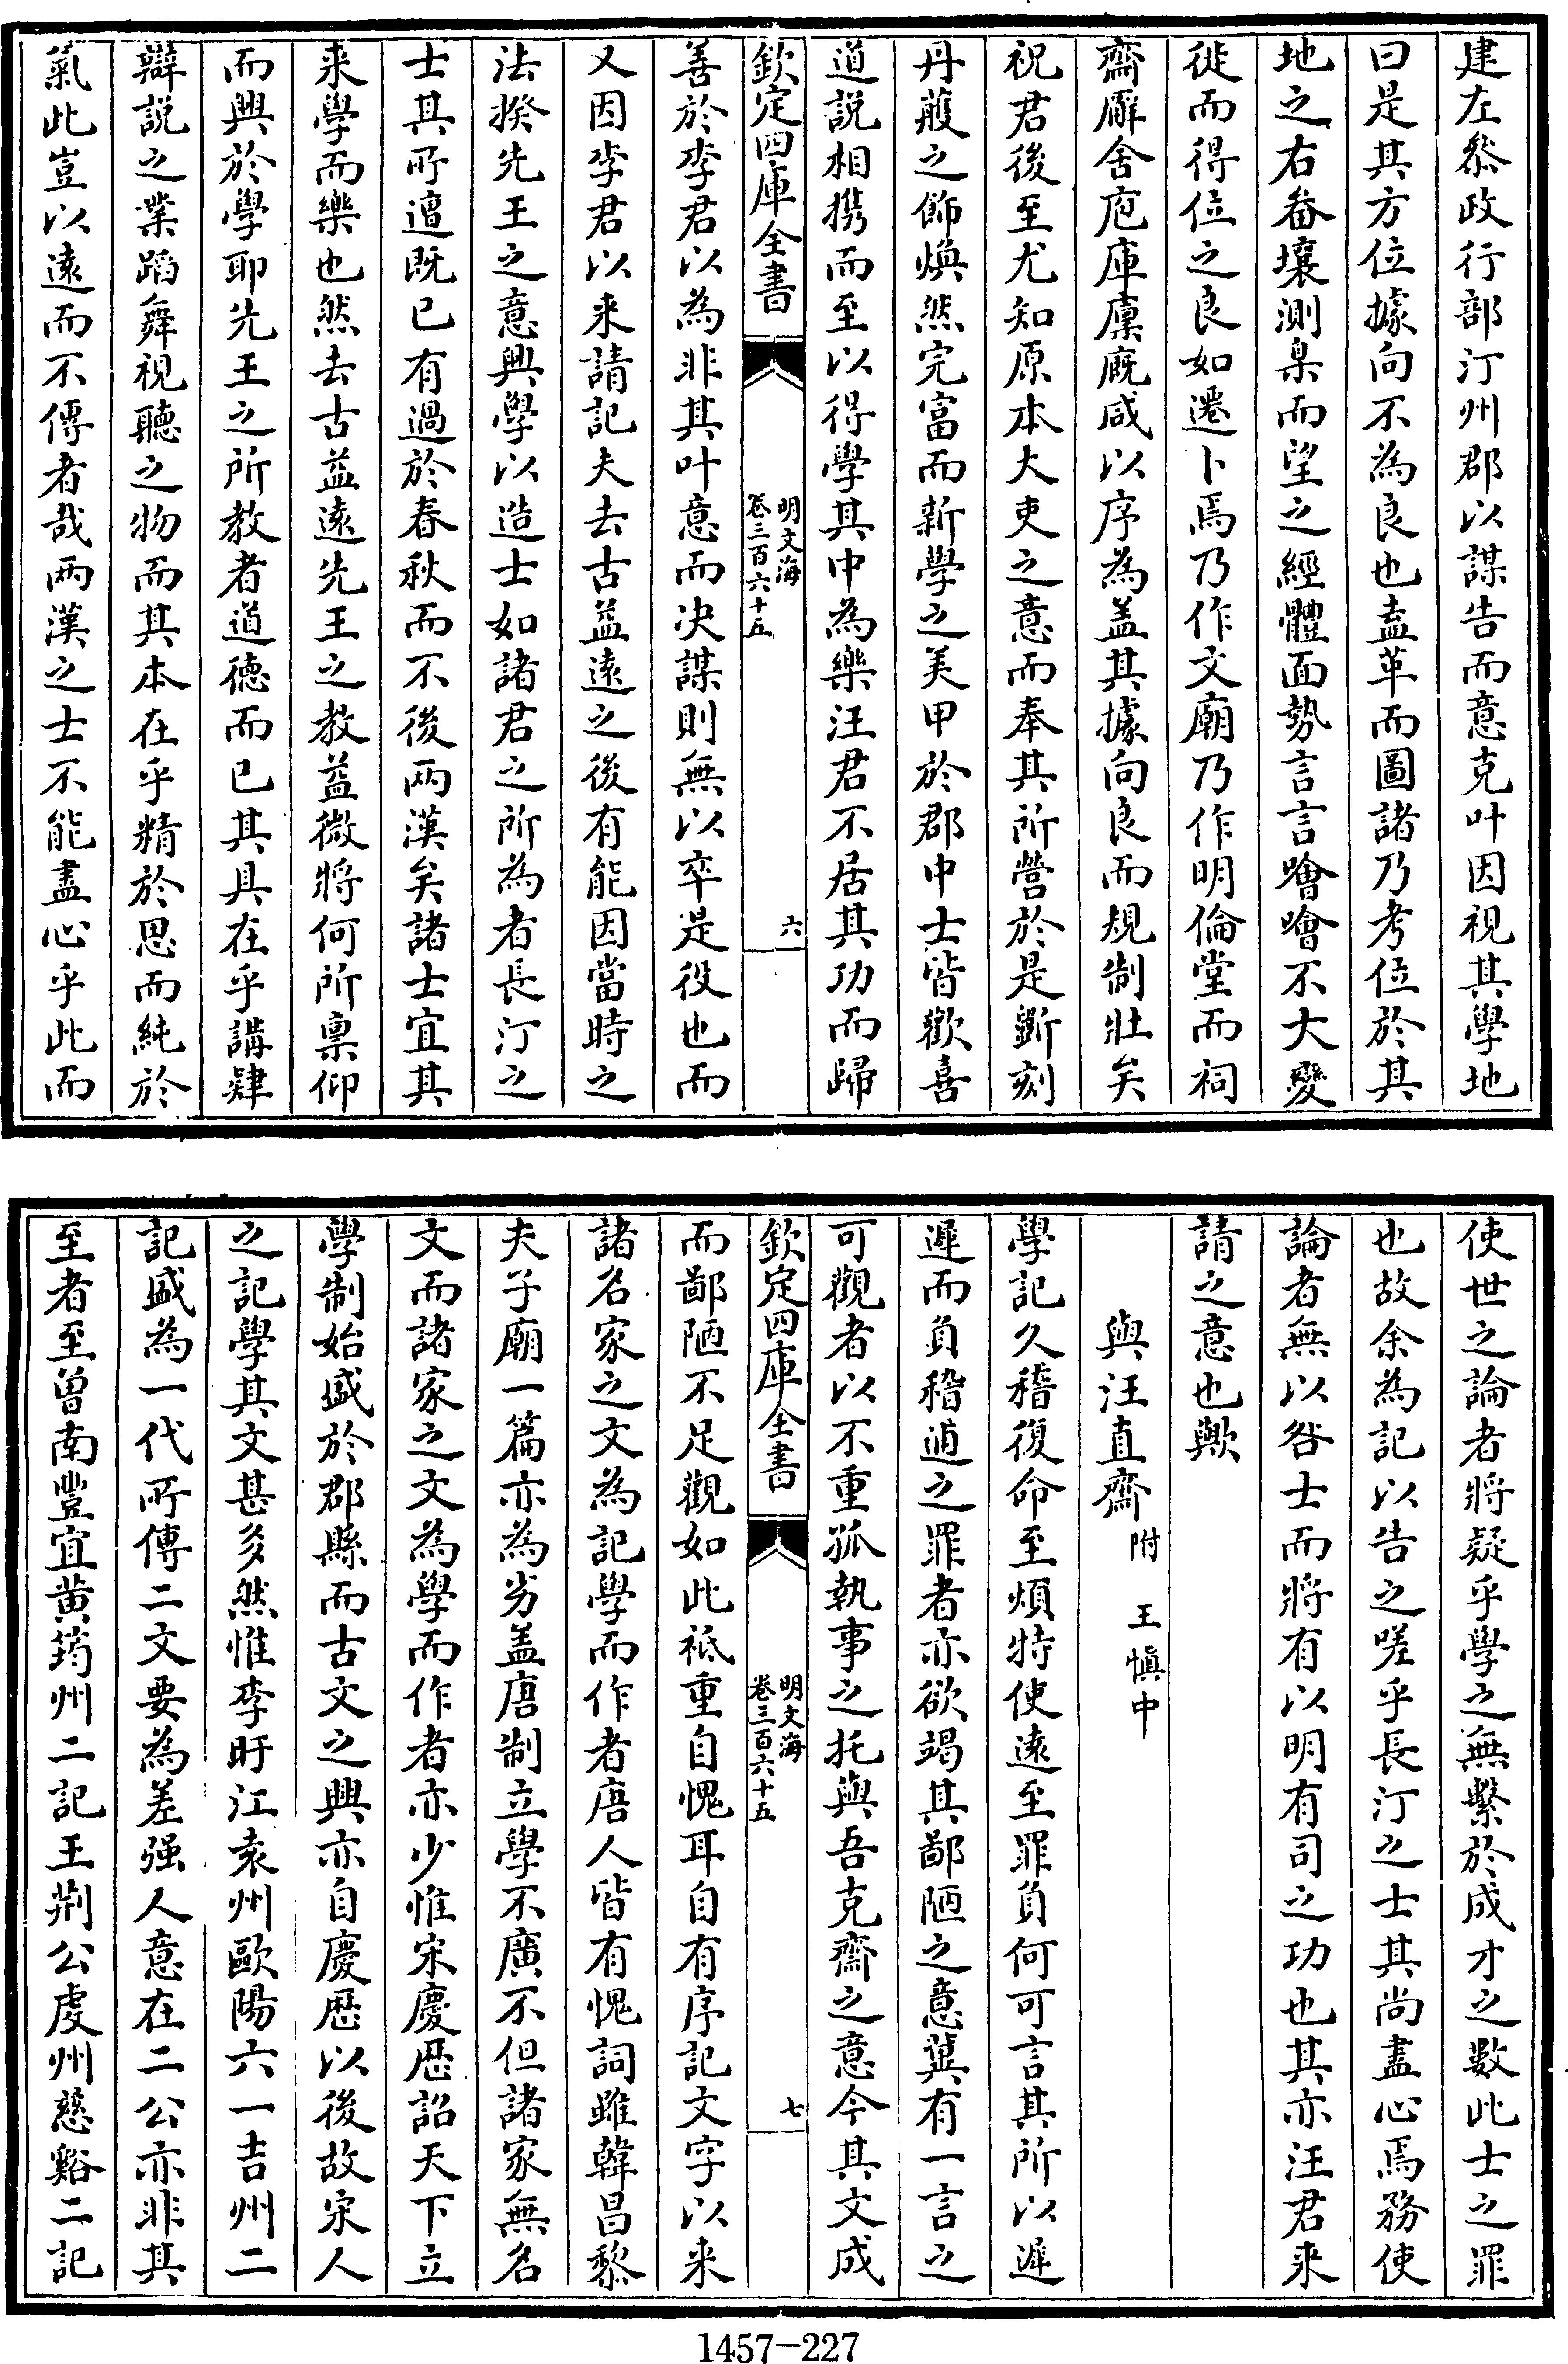 建左叅政行部汀州郡以謀告而意克叶因視其學地
曰是其方位據向不為良也盍革而圖諸乃考位於其
地之右畚壤測臬而望之經體面勢言言噲噲不大變
徙而得位之良如遷卜焉乃作文廟乃作明倫堂而祠
齋廨舍庖庫廩廐咸以序為盖其據向良而規制壯矣
祝君後至尤知原本大吏之意而奉其所營於是斵刻
丹雘之飾煥然完富而新學之美甲於郡中士皆歡喜
道説相携而至以得學其中為樂汪君不居其功而歸
欽定四庫全書
明文海
卷三百六十五
六
善於李君以為非其叶意而决謀則無以卒是役也而
又因李君以來請記夫去古益遠之後有能因當時之
法揆先王之意興學以造士如諸君之所為者長汀之
士其所遭既已有過於春秋而不後两漢矣諸士宜其
来學而樂也然去古益遠先王之教益微將何所禀仰
而興於學耶先王之所教者道德而已其具在乎講肄
辯説之業蹈舞視聽之物而其本在乎精於思而純於
氣此豈以遠而不傳者哉两漢之士不能盡心乎此而
使世之論者將疑乎學之無繫於成才之數此士之罪
也故余為記以告之嗟乎長汀之士其尚盡心焉務使
論者無以咎士而將有以明有司之功也其亦汪君来
請之意也歟
與汪直齋附 王愼中
學記久稽復命至煩特使遠至罪負何可言其所以遲
遲而負稽逋之罪者亦欲竭其鄙陋之意冀有一言之
可觀者以不重孤執事之托與吾克齋之意今其文成
欽定四庫全書
明文海
卷三百六十五
七
而鄙陋不足觀如此祗重自愧耳自有序記文字以来
諸名家之文為記學而作者唐人皆有愧詞雖韓昌黎
夫子廟一篇亦為劣盖唐制立學不廣不但諸家無名
文而諸家之文為學而作者亦少惟宋慶歷詔天下立
學制始盛於郡縣而古文之興亦自慶歷以後故宋人
之記學其文甚多然惟李盱江袁州歐陽六一吉州二
記盛為一代所傳二文要為差强人意在二公亦非其
至者至曾南豐宜黄筠州二記王荆公虔州慈谿二記
1457-227